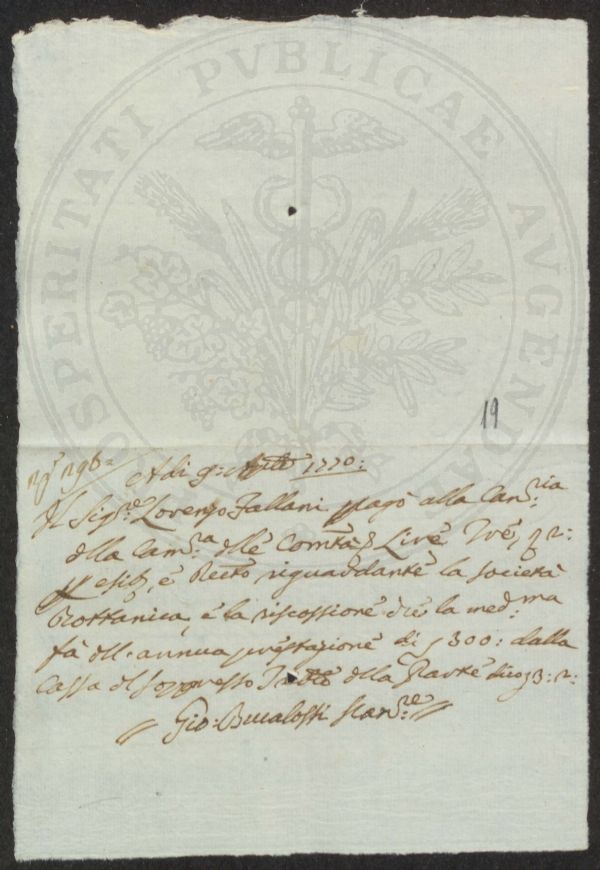 PROSPERITATI PVBLICAE AVGENDAE
19
n.º 298=
Adi 9: Aple 1770:
Il Sig.re Lorenzo Fallani pagò alla Can.ria
della Cam.ra delle Comtà Lire Tre,
esib, e Rectò riguardante la Società
Bottanica, e la riscossione che la med.ma
fà dell'annua prestazione di 300: dalla
Cassa del soppresso della Parte dico 3: 2:
Gio: Bucalossi Can.re